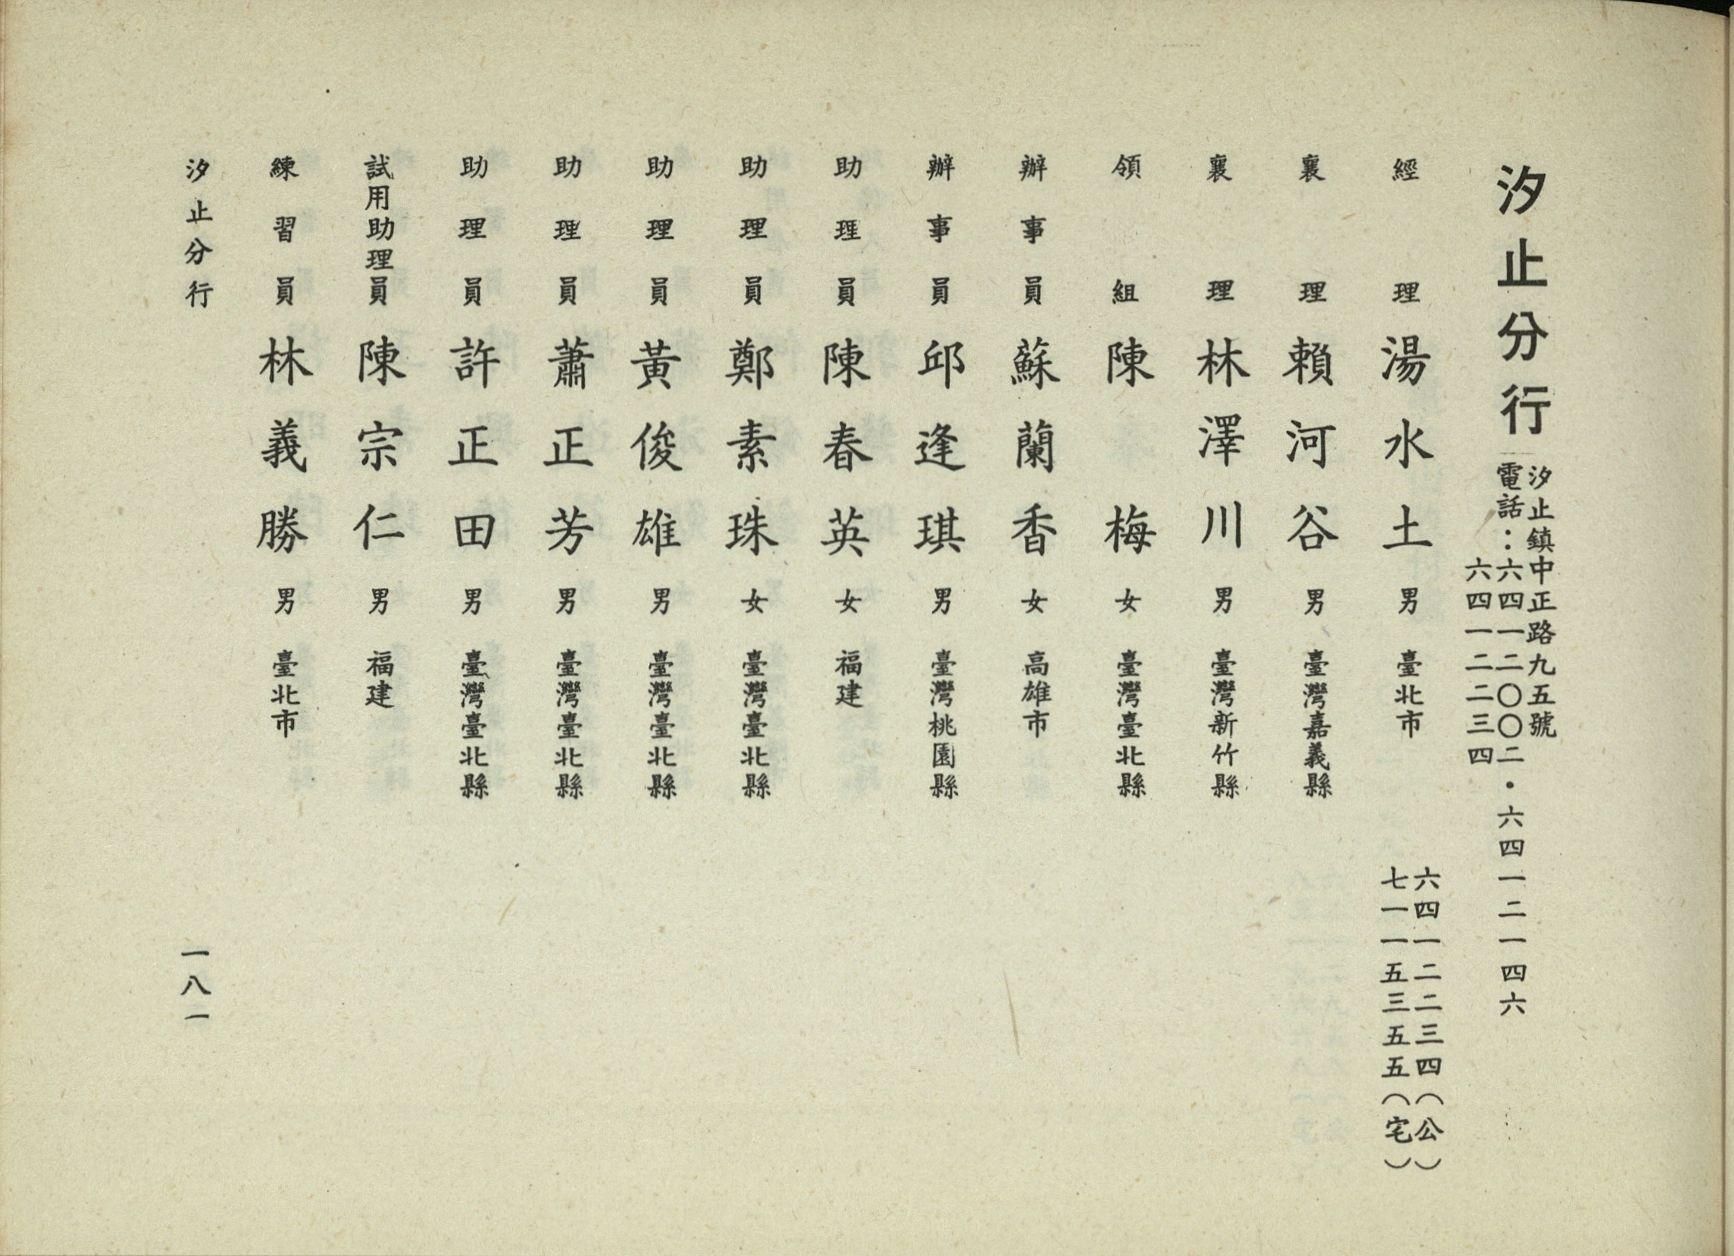 汐止分行
汐止鎮中正路九五號
電話：六四一二〇〇二・六四一二一四六
六四一二二三四
經理 湯水土 男 臺北市
六四一二二三四（公）
七一一五三五五（宅）
襄理 賴河谷 男 臺灣嘉義縣
襄理 林澤川 男 臺灣新竹縣
領組 陳梅 女 臺灣臺北縣
辦事員 蘇蘭香 女 高雄市
辦事員 邱逢琪 男 臺灣桃園縣
助理員 陳春英 女 福建
助理員 鄭素珠 女 臺灣臺北縣
助理員 黃俊雄 男 臺灣臺北縣
助理員 蕭正芳 男 臺灣臺北縣
助理員 許正田 男 臺灣臺北縣
試用助理員 陳宗仁 男 福建
練習員 林義勝 男 臺北市
汐止分行
一八一